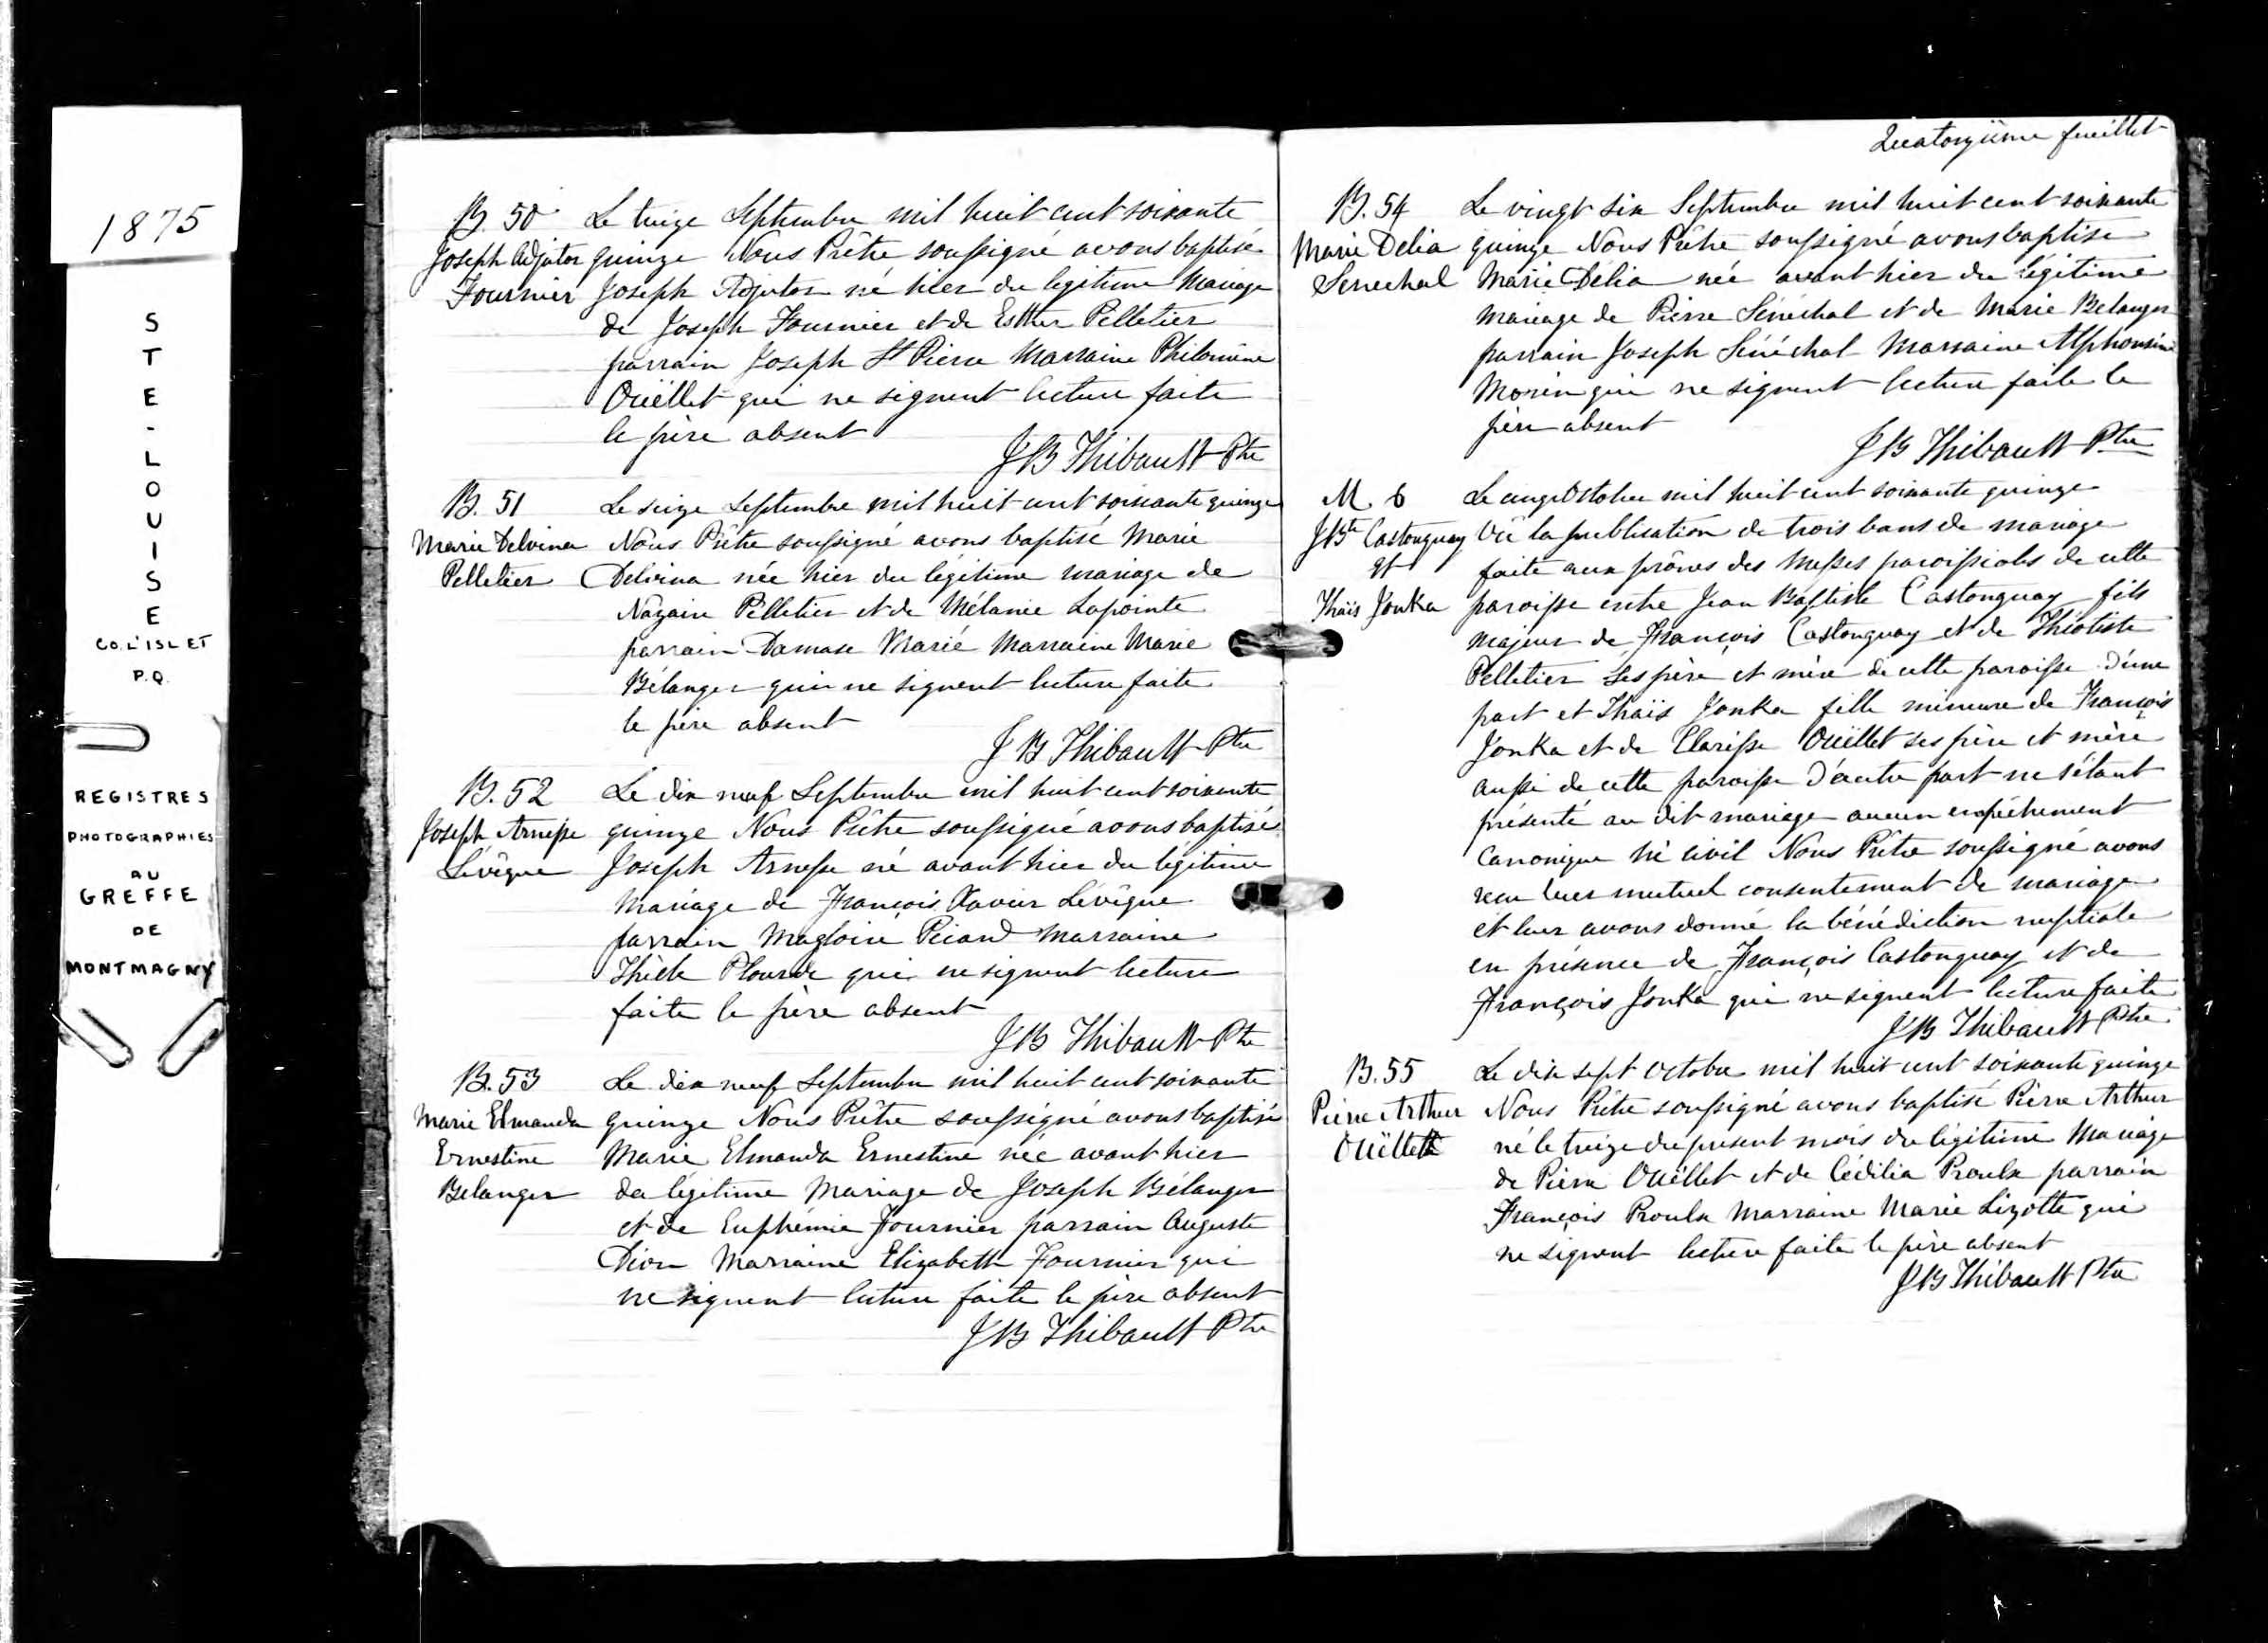 1875
STE-LOUISE
CO. L'ISLET
P.Q.
REGISTRES
PHOTOGRAPHIES
AU
GREFFE
DE
MONTMAGNY
B. 50
Joseph Adjutor
Fournier
Le treize Septembre mil huit cent soixante
quinze Nous Prêtre soussigné avons baptisé
Joseph Adjutor né hier du légitime Mariage
de Joseph Fournier et de Esther Pelletier
parrain Joseph St Pierre Marraine Philomène
Ouëllet qui ne signent lecture faite
le père absent
JB Thibault Ptre
B. 51
Marie Delvina
Pelletier
Le seize Septembre mil huit cent soixante quinze
Nous Prêtre soussigné avons baptisé Marie
Delvina née hier du légitime mariage de
Nazaire Pelletier et de Mélanie Lapointe
parrain Damase Marié Marraine Marie
Bélanger qui ne signent lecture faite
le père absent
JB Thibault Ptre
B. 52
Joseph Arnesse
Lévêque
Le dix neuf Septembre mil huit cent soixante
quinze Nous Prêtre soussigné avons baptisé
Joseph Arnesse né avant hier du légitime
Mariage de François Xavier Lévêque
parrain Magloire Picard Marraine
Thècle Plourde qui ne signent lecture
faite le père absent
JB Thibault Ptre
B. 53
Marie Elmanda
Ernestine
Belanger
Le dix neuf Septembre mil huit cent soixante
quinze Nous Prêtre soussigné avons baptisé
Marie Elmanda Ernestine née avant hier
du légitime Mariage de Joseph Bélanger
et de Euphémie Fournier parrain Auguste
Dion Marraine Elizabeth Fournier qui
ne signent lecture faite le père absent
JB Thibault Ptre
Quatorzième feuillet
B. 54
Marie Delia
Senechal
Le vingt six Septembre mil huit cent soixante
quinze Nous Prêtre soussigné avons baptisé
Marie Délia née avant hier du légitime
Mariage de Pierre Sénéchal et de Marie Belanger
parrain Joseph Sénéchal Marraine Alphonsine
Morin qui ne signent lecture faite le
père absent
JB Thibault Ptre
M 6
J Bte Castonguay
et
Thaïs Jonka
Le onze Octobre mil huit cent soixante quinze
Vû la publication de trois bans de mariage
faite aux prônes des Messes paroissiales de cette
paroisse entre Jean Baptiste Castonguay fils
majeur de François Castonguay et de Théotiste
Pelletier ses père et mère de cette paroisse d'une
part et Thaïs Jonka fille mineure de François
Jonka et de Clarisse Ouëllet ses père et mère
aussi de cette paroisse d'autre part ne s'étant
présenté au dit mariage aucun empêchement
Canonique ni civil Nous Prêtre soussigné avons
reçu leur mutuel consentement de mariage
et leur avons donné la bénédiction nuptiale
en présence de François Castonguay et de
François Jonka qui ne signent lecture faite
JB Thibault Ptre
B. 55
Pierre Arthur
Ouëllette
Le dix sept Octobre mil huit cent soixante quinze
Nous Prêtre soussigné avons baptisé Pierre Arthur
né le treize du present mois du légitime Mariage
de Pierre Ouëllet et de Cédilia Proulx parrain
François Proulx Marraine Marie Lizotte qui
ne signent lecture faite le père absent
JB Thibault Ptre